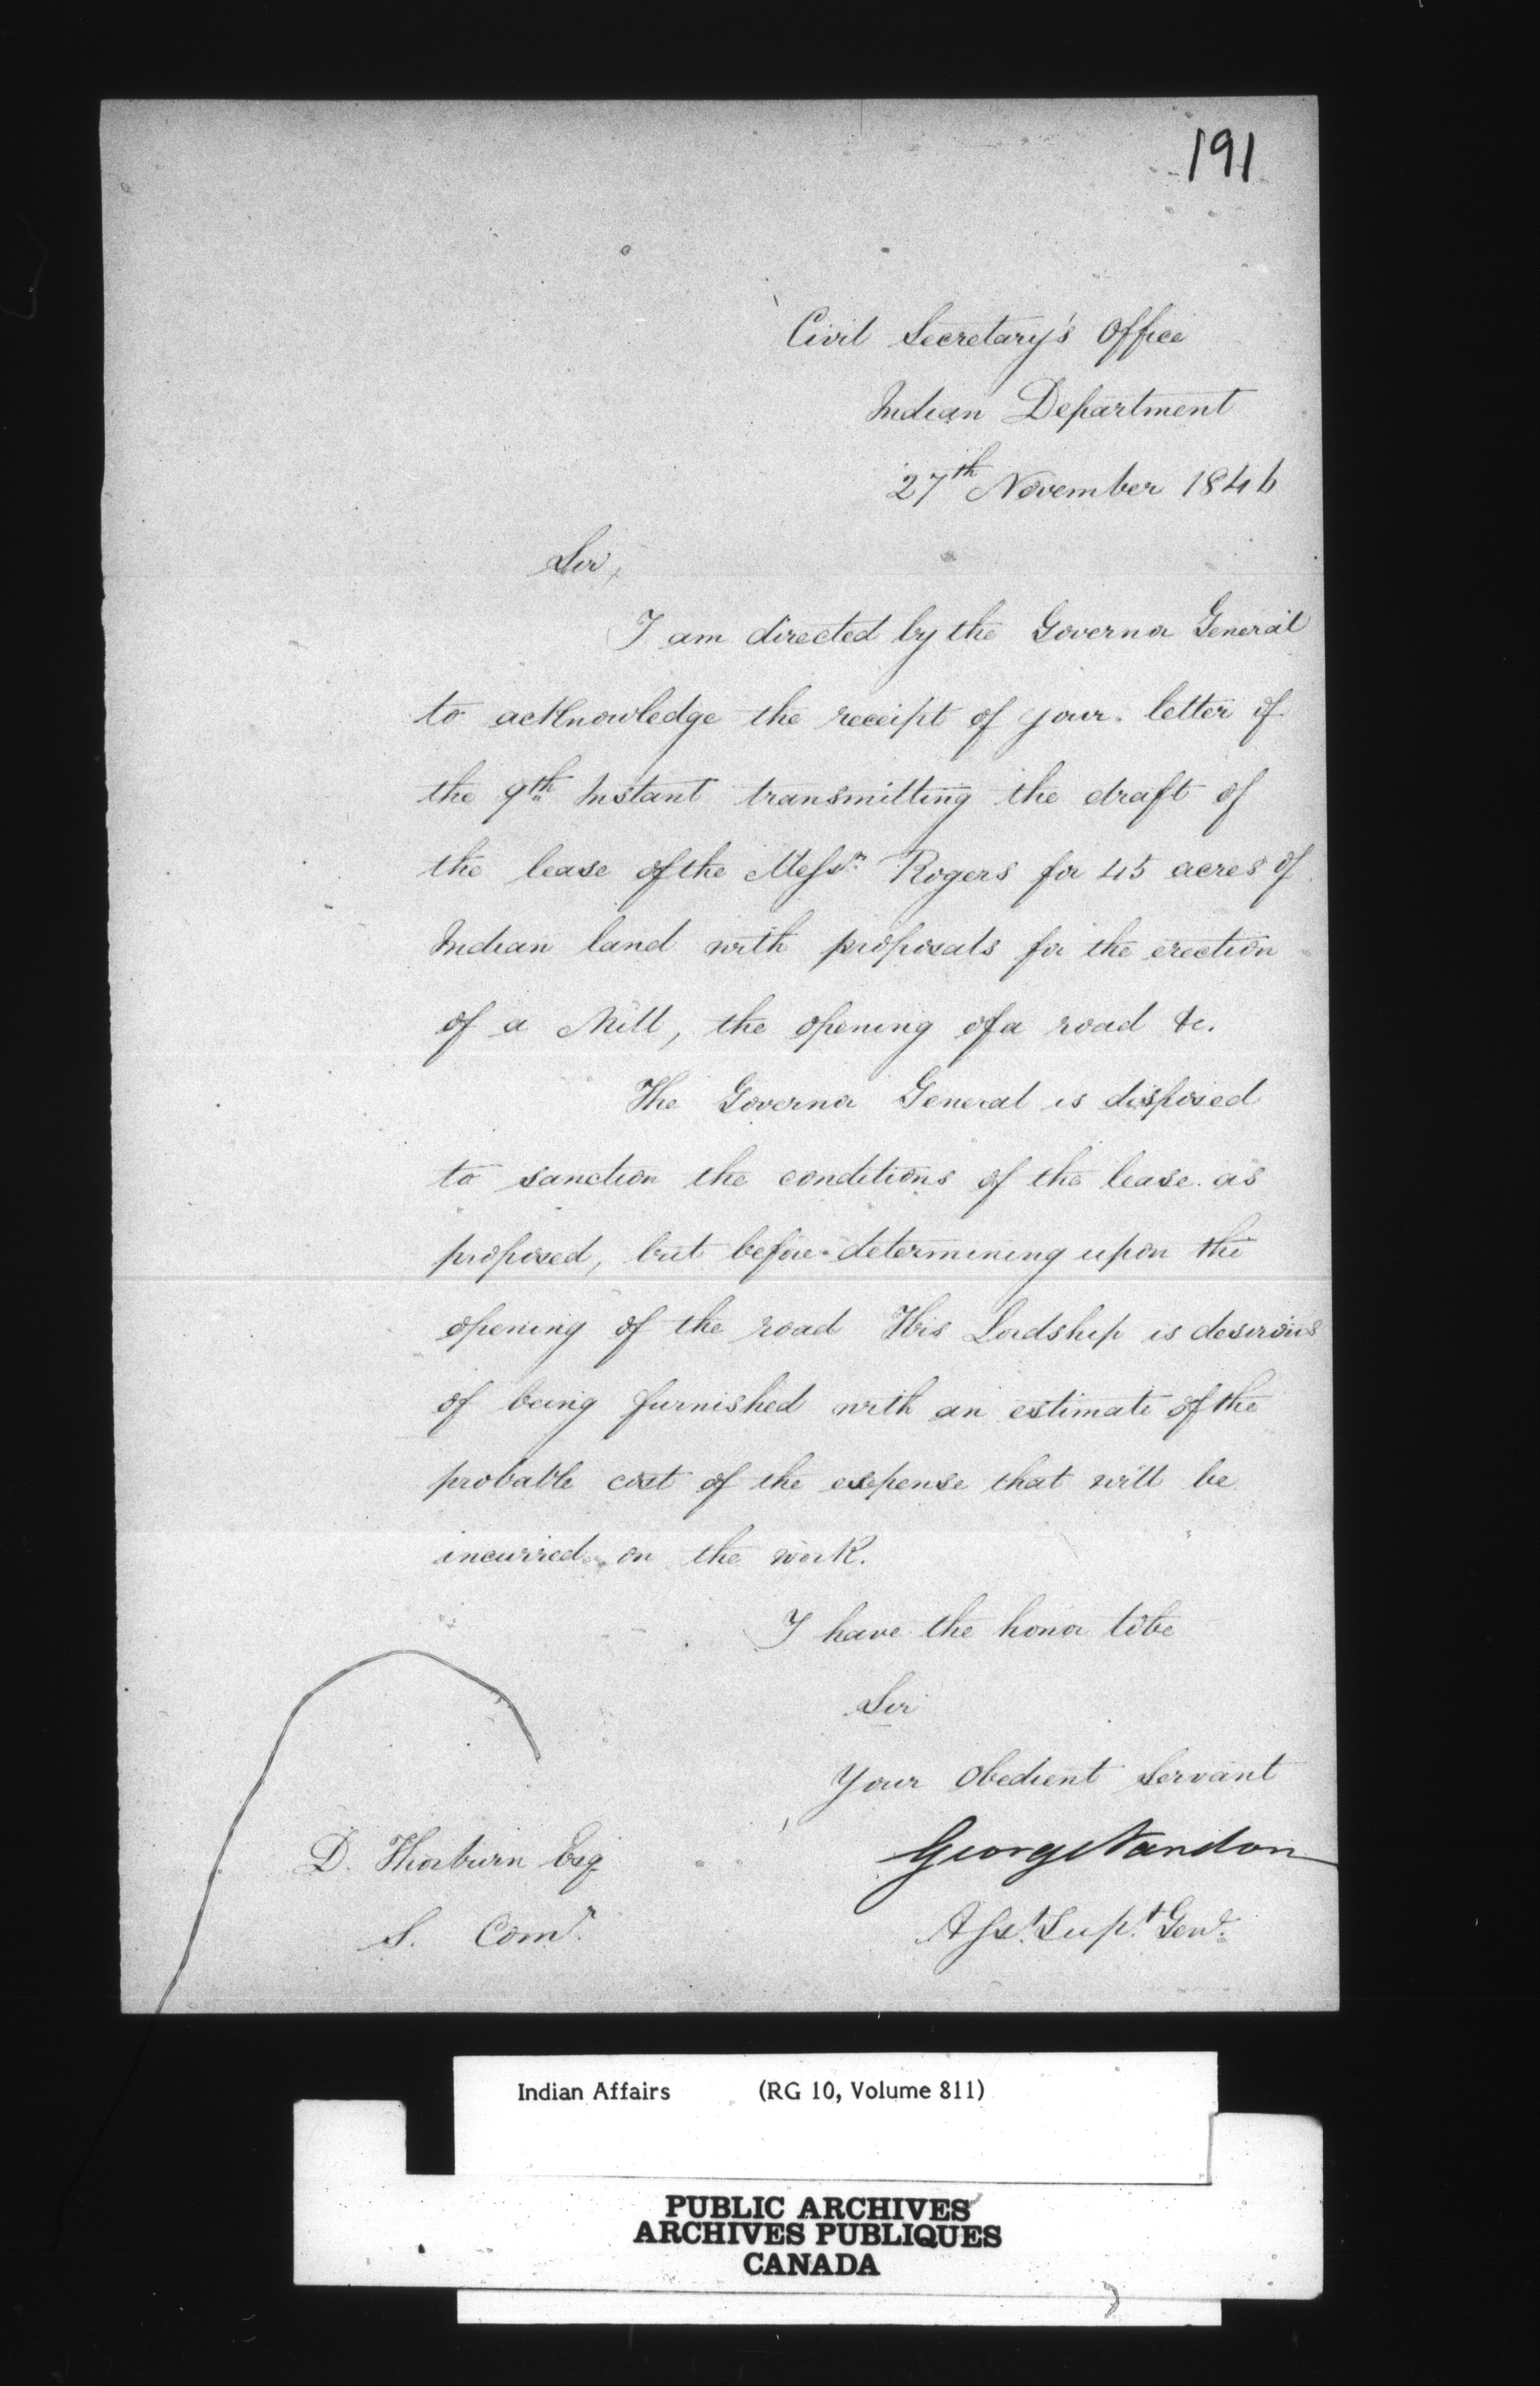 191
Civil Secretary's Office
Indian Department
27th November 1846
Sir,
I am directed by the Governor General
to acknowledge the receipt of your letter of
the 9th Instant transmitting the draft of
the lease of the Messrs. Rogers for 45 acres of
Indian land with proposals for the erection
of a Mill, the opening of a road &c.
The Governor General is disposed
to sanction the conditions of the lease as
proposed, but before determining upon the
opening of the road His Lordship is desirous
of being furnished with an estimate of the
probable cost of the expense that will be
incurred on the work.
I have the honor to be
Sir
Your Obedient Servant
George Vardon
Asst. Supt. Genl.
D. Thorburn Esq
S. Comr.
Indian Affairs (RG 10, Volume 811)
PUBLIC ARCHIVES
ARCHIVES PUBLIQUES
CANADA